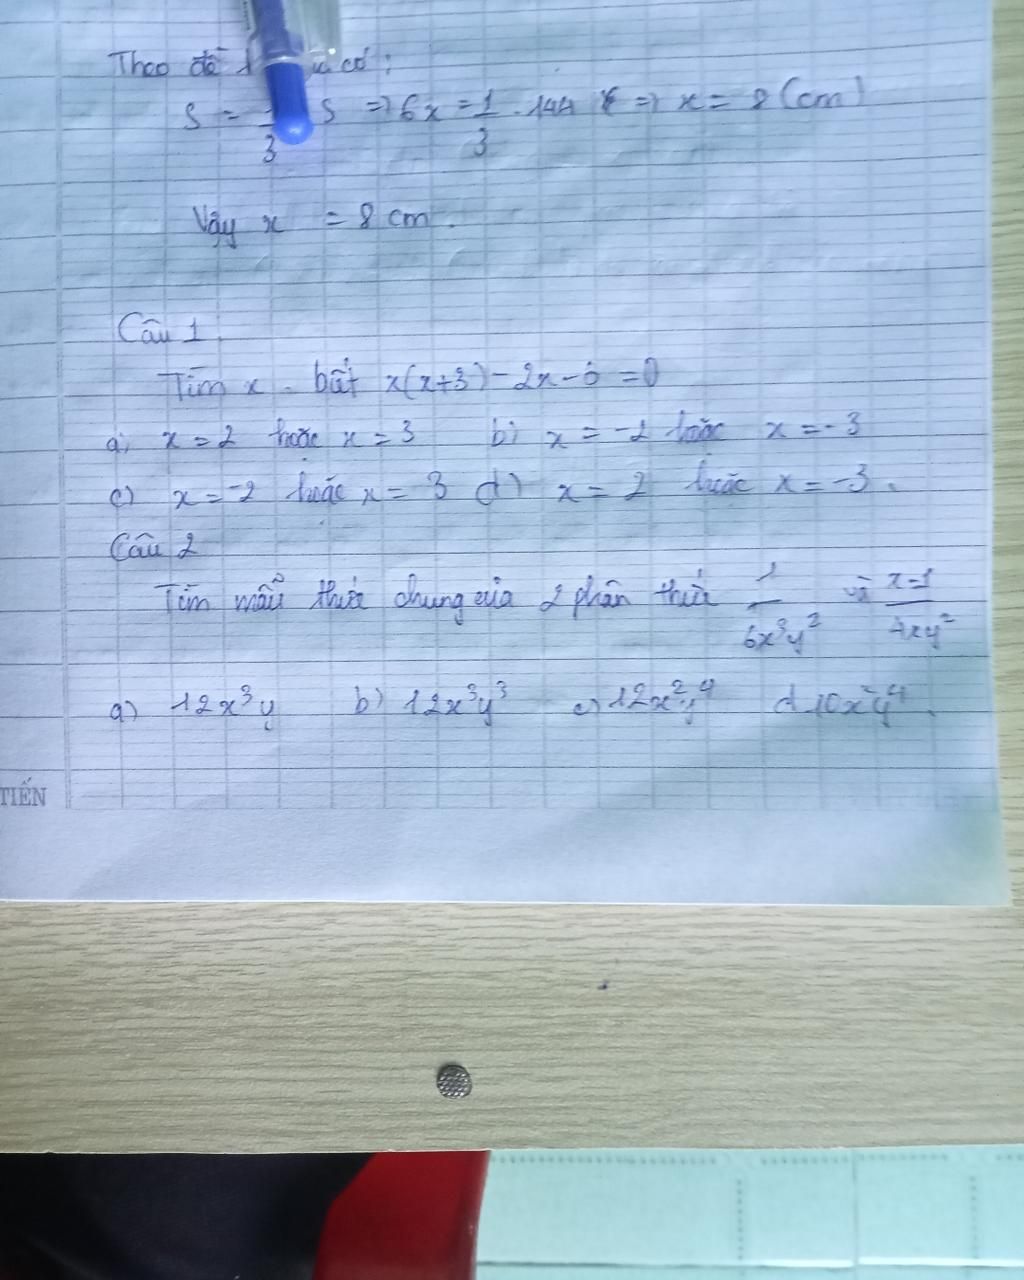 Theo đề có :
S = 3 S => 6x = 1/3 . 144 => x = 8 (cm)
Vậy x = 8 cm.
Câu 1.
Tìm x biết x(x+3) - 2x - 6 = 0
a) x = 2 hoặc x = 3 b) x = -2 hoặc x = -3
c) x = -2 hoặc x = 3 d) x = 2 hoặc x = -3.
Câu 2
Tìm mẫu thức chung của 2 phân thức 1/6x³y² và x-1/4xy²
a) 12x³y b) 12x³y³ c) 12x²y⁴ d 10x²y⁴.
TIẾN